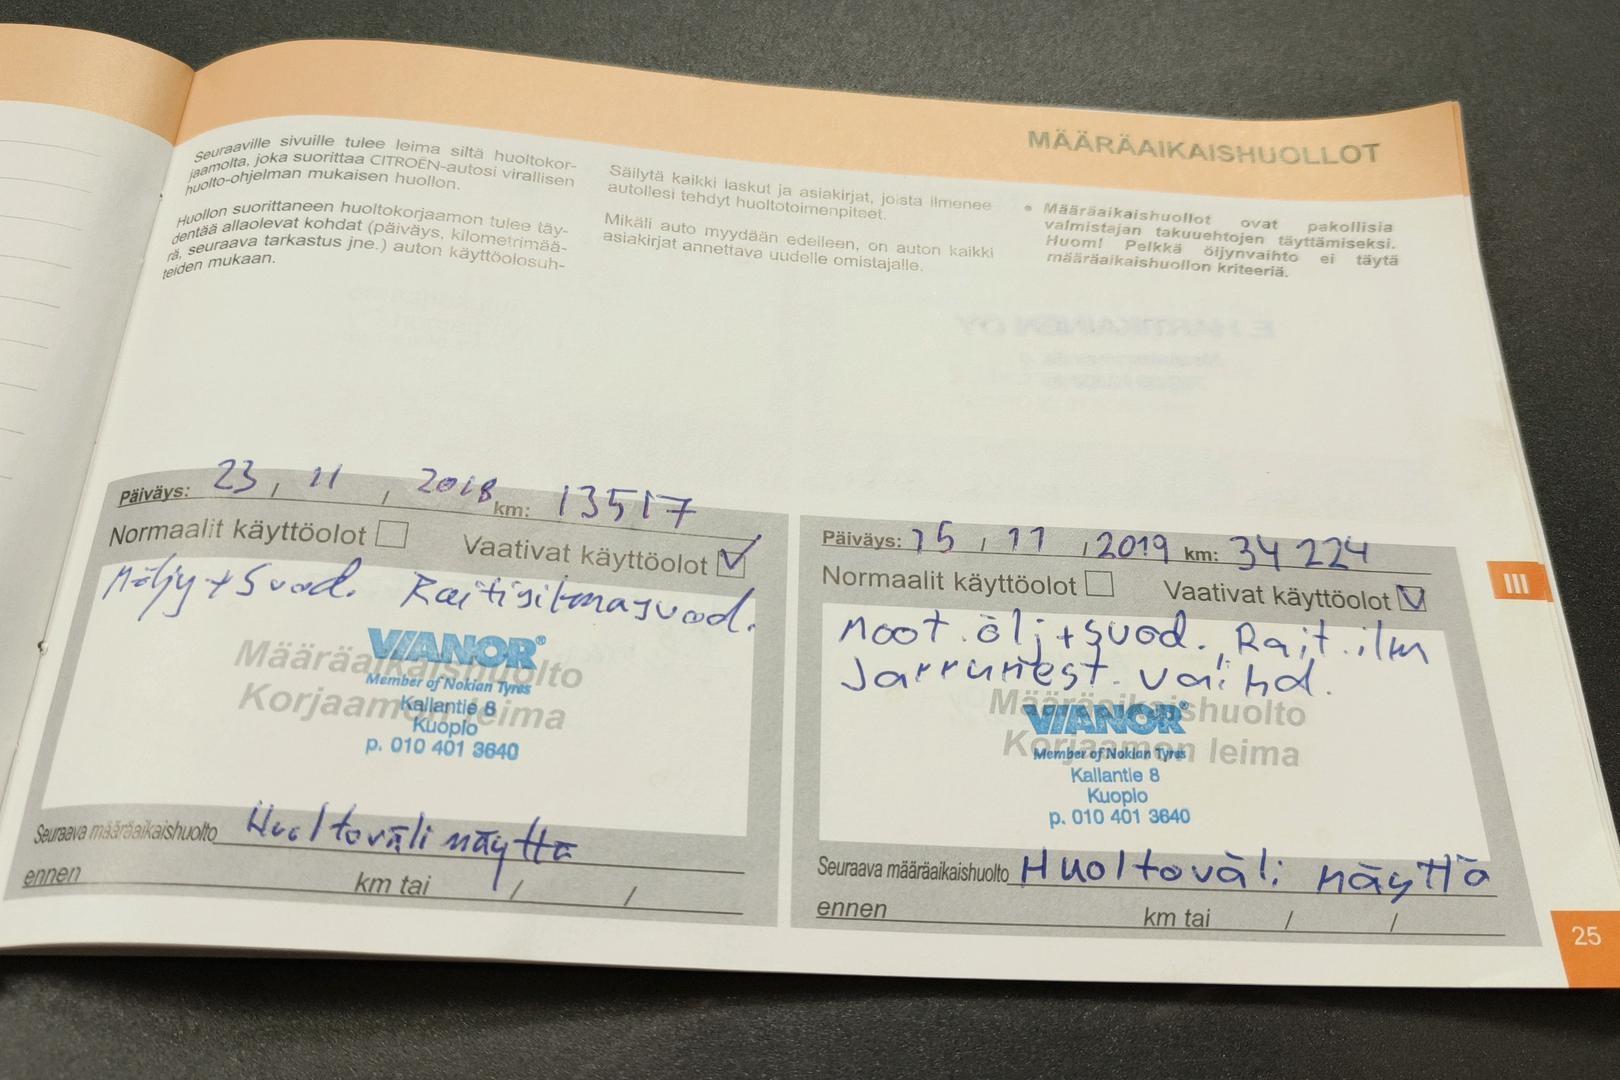 MÄÄRÄAIKAISHUOLLOT
Seuraaville sivuille tulee leima siltä huoltokor-
jaamolta, joka suorittaa CITROËN-autosi virallisen
huolto-ohjelman mukaisen huollon.
Huollon suorittaneen huoltokorjaamon tulee täy-
dentää allaolevat kohdat (päiväys, kilometrimää-
rä, seuraava tarkastus jne.) auton käyttöolosuh-
teiden mukaan.
Säilytä kaikki laskut ja asiakirjat, joista ilmenee
autollesi tehdyt huoltotoimenpiteet.
Mikäli auto myydään edelleen, on auton kaikki
asiakirjat annettava uudelle omistajalle.
• Määräaikaishuollot ovat pakollisia
valmistajan takuuehtojen täyttämiseksi.
Huom! Pelkkä öljynvaihto ei täytä
määräaikaishuollon kriteeriä.
Päiväys: 23 / 11 / 2018 km: 13517
Normaalit käyttöolot Vaativat käyttöolot
Möljy + Suod. Raitisilmasuod.
Määräaikaishuolto
Korjaamon leima
VIANOR®
Member of Nokian Tyres
Kallantie 8
Kuopio
p. 010 401 3640
Seuraava määräaikaishuolto Huoltoväli näyttö
ennen km tai / /
Päiväys: 15 / 11 / 2019 km: 34 224
Normaalit käyttöolot Vaativat käyttöolot
Moot. ölj + Suod. Rait.ilm
Jarrunest. vaihd.
Määräaikaishuolto
Korjaamon leima
VIANOR®
Member of Nokian Tyres
Kallantie 8
Kuopio
p. 010 401 3640
Seuraava määräaikaishuolto Huoltoväli näyttö
ennen km tai / /
III
25